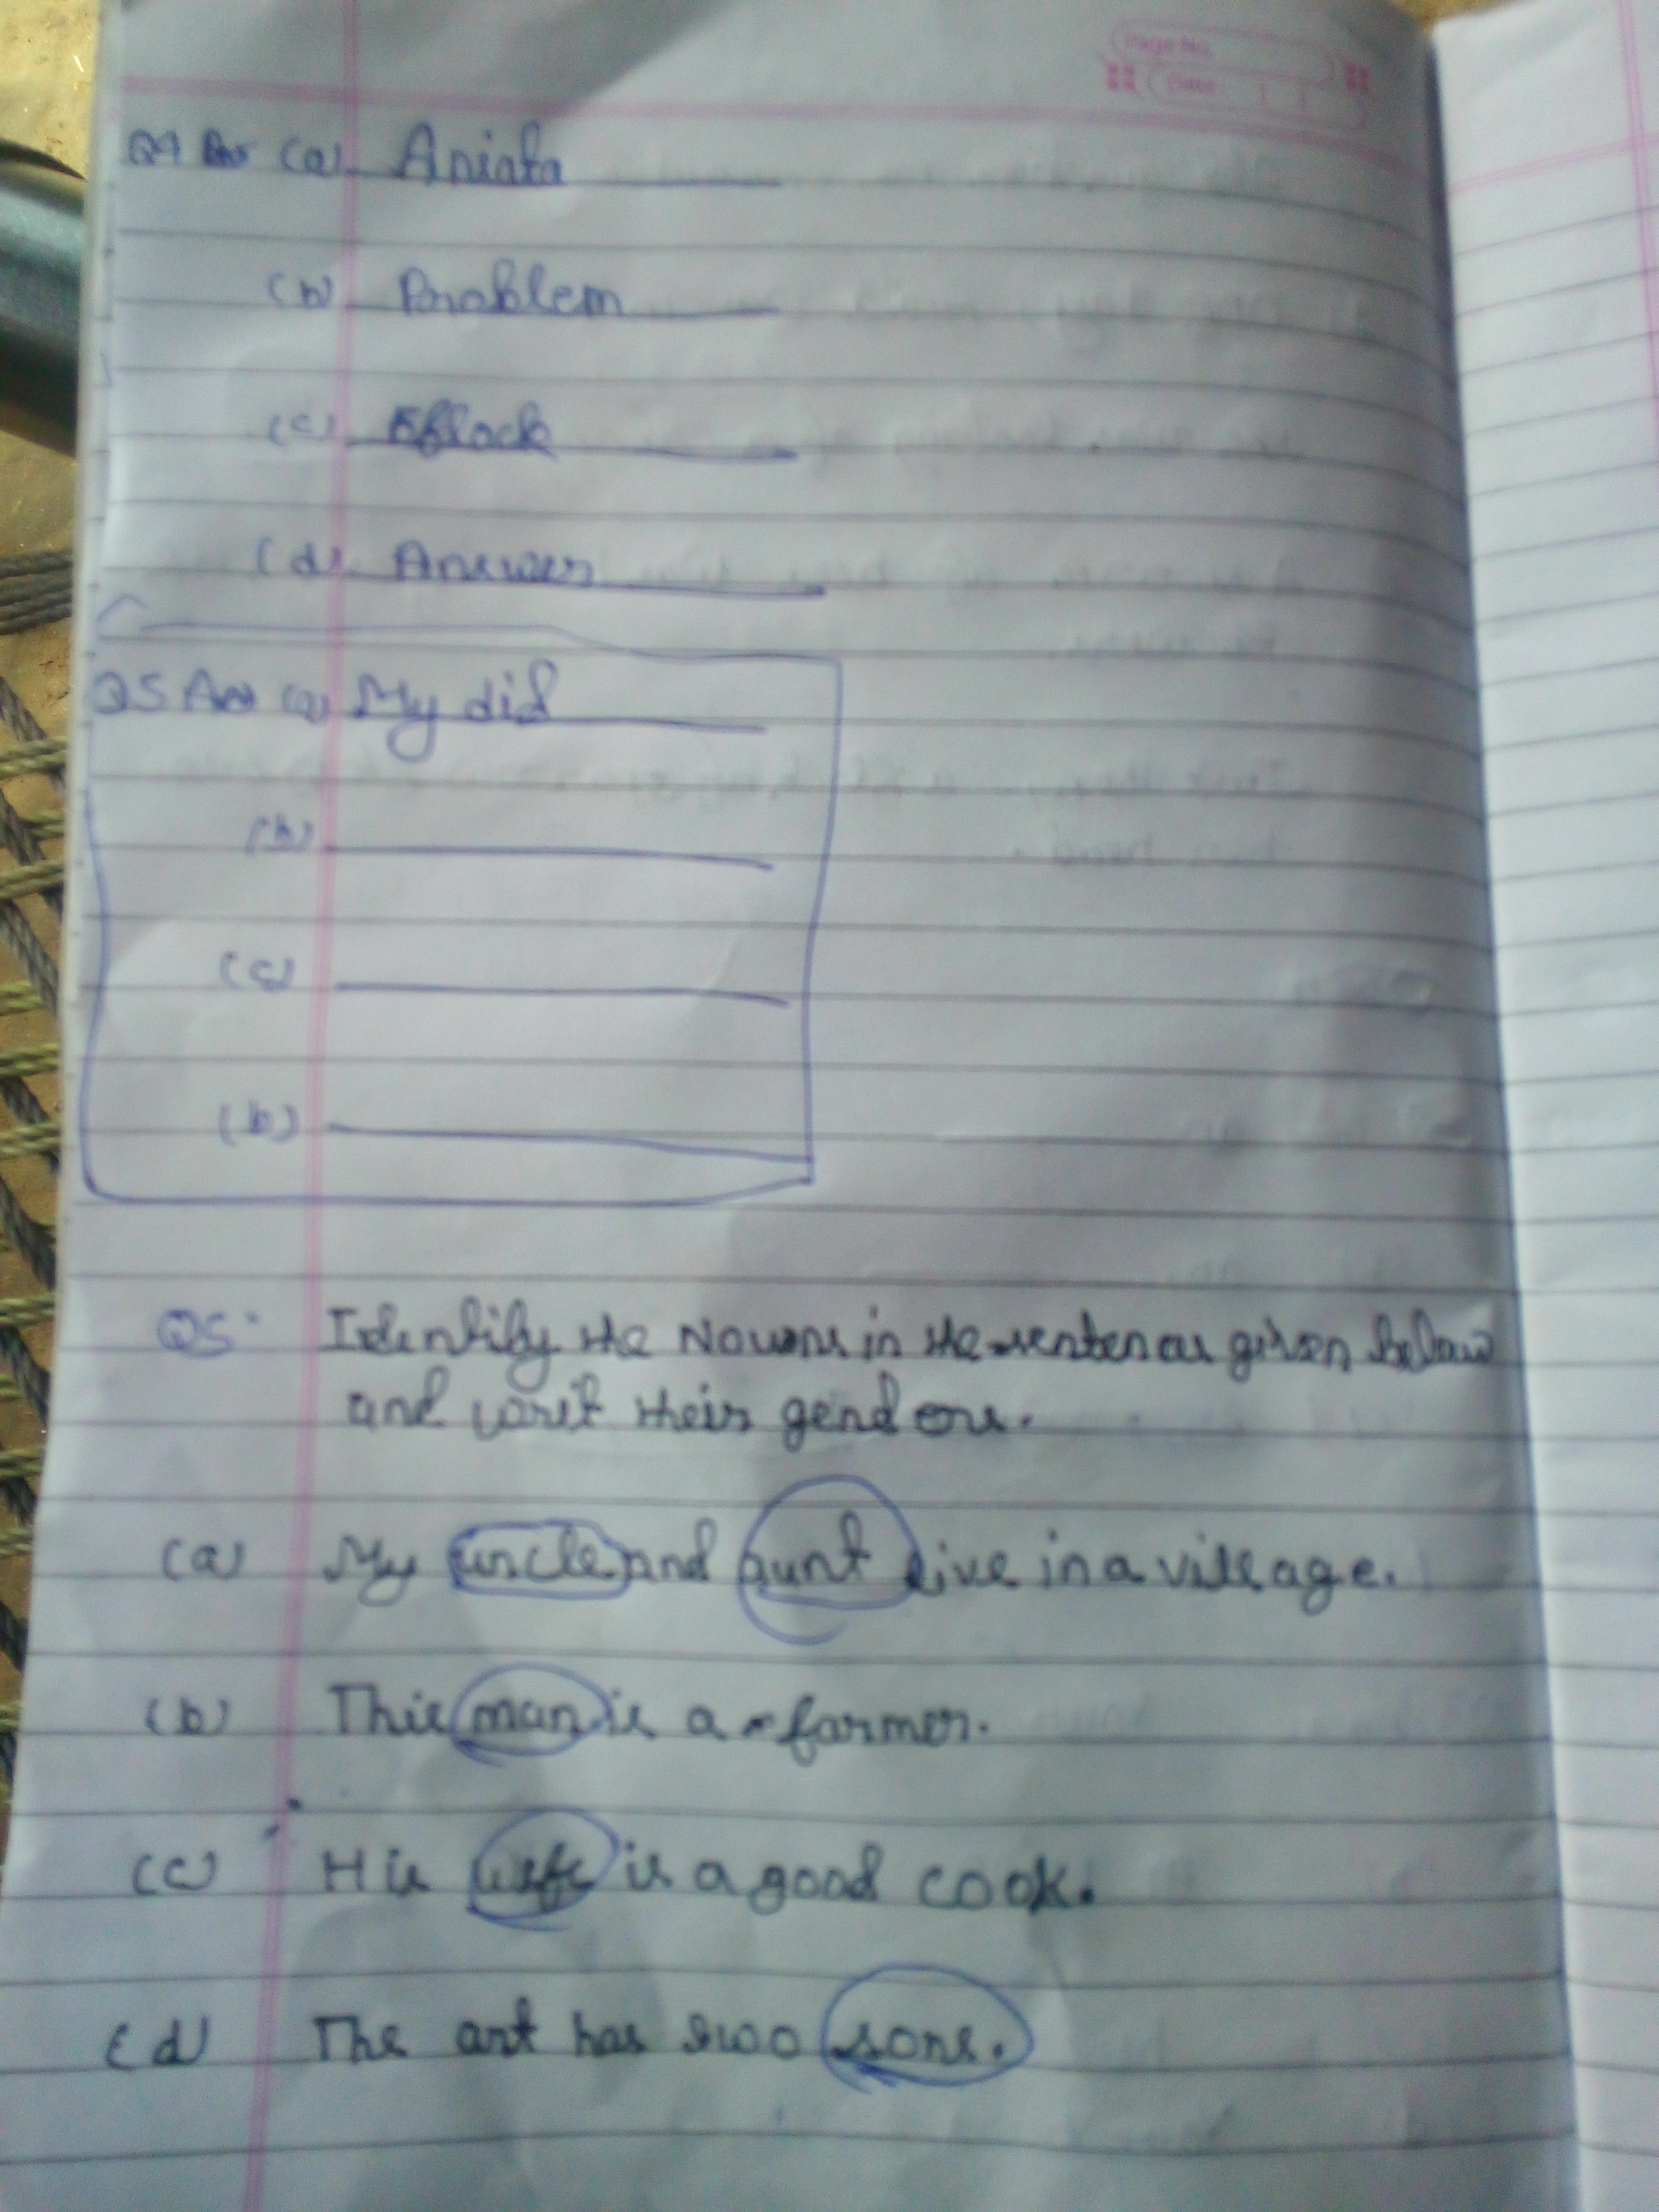 Page No.
Date:
Q4 Ans (a) Aniata
(b) Problem
(c) Block
(d) Answer
Q5 Ans (a) My did
(b)
(c)
(b)
Q5. Identify the Nouns in the sentences given below
and writ their genders.
(a) My uncle and aunt live in a village.
(b) This man is a farmer.
(c) His wife is a good cook.
(d) The ant has two sons.